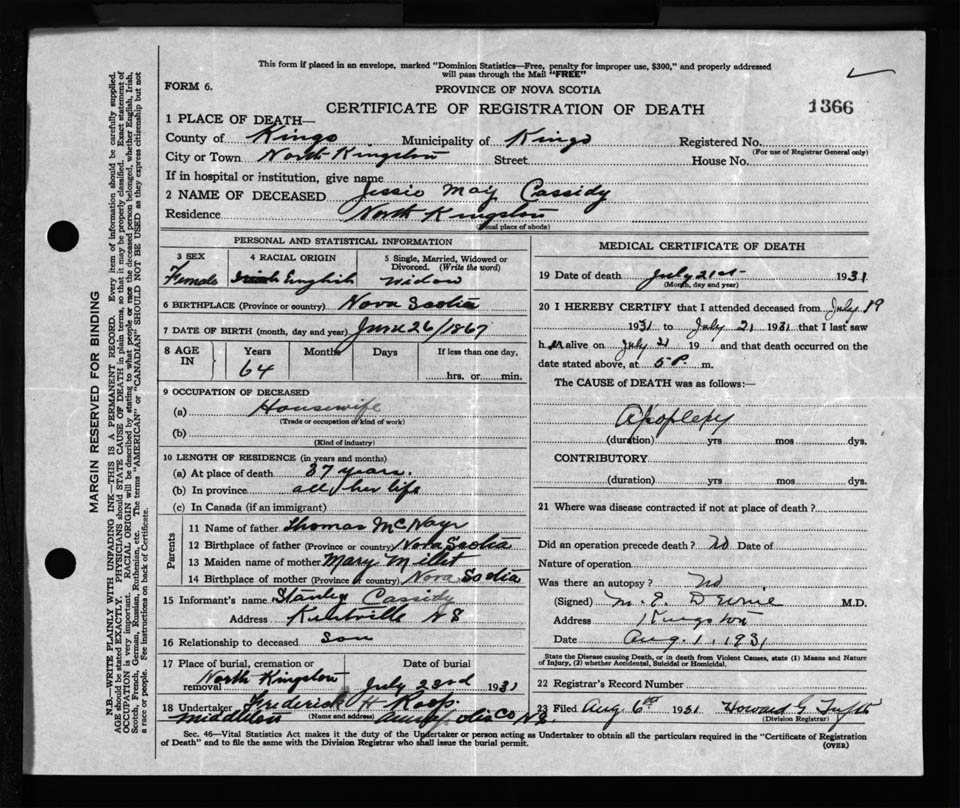 This form if placed in an envelope, marked "Dominion Statistics—Free, penalty for improper use, $300," and properly addressed
will pass through the Mail "FREE"
FORM 6.
PROVINCE OF NOVA SCOTIA
CERTIFICATE OF REGISTRATION OF DEATH
1366
1 PLACE OF DEATH—
County of Kings Municipality of Kings Registered No.
(For use of Registrar General only)
City or Town North Kingston Street House No.
If in hospital or institution, give name
2 NAME OF DECEASED Jessie May Cassidy
Residence North Kingston
(Usual place of abode)
MARGIN RESERVED FOR BINDING
N.B.—WRITE PLAINLY WITH UNFADING INK—THIS IS A PERMANENT RECORD. Every item of information should be carefully supplied.
AGE should be stated EXACTLY. PHYSICIANS should STATE CAUSE OF DEATH in plain terms, so that it may be properly classified. Exact statement of
OCCUPATION is very important. RACIAL ORIGIN will be described by stating to what people or race the deceased person belonged, whether English, Irish,
Scotch, French, German, Russian, Ruthenian, etc. The terms "AMERICAN" or "CANADIAN" SHOULD NOT BE USED as they express citizenship but not
a race or people. See instructions on back of Certificate.
PERSONAL AND STATISTICAL INFORMATION
3 SEX
Female
4 RACIAL ORIGIN
English
5 Single, Married, Widowed or
Divorced. (Write the word)
Widow
6 BIRTHPLACE (Province or country) Nova Scotia
7 DATE OF BIRTH (month, day and year) June 26/1867
8 AGE
IN
Years
64
Months
Days
If less than one day,
hrs. or min.
9 OCCUPATION OF DECEASED
(a) Housewife
(Trade or occupation or kind of work)
(b)
(Kind of industry)
10 LENGTH OF RESIDENCE (in years and months)
(a) At place of death 37 years.
(b) In province all her life
(c) In Canada (if an immigrant)
Parents
11 Name of father Thomas McNayr
12 Birthplace of father (Province or country) Nova Scotia
13 Maiden name of mother Mary
14 Birthplace of mother (Province or country) Nova Scotia
15 Informant's name Stanley Cassidy
Address Kentville NS
16 Relationship to deceased son
17 Place of burial, cremation or
removal North Kingston
Date of burial
July 23rd 1931
18 Undertaker Frederick H Roop
Middleton (Name and address) Annapolis Co N.S.
MEDICAL CERTIFICATE OF DEATH
19 Date of death July 21st 1931
(Month, day and year)
20 I HEREBY CERTIFY that I attended deceased from July 19
1931 to July 21 1931 that I last saw
h er alive on July 21 19 and that death occurred on the
date stated above, at 5 P. m.
The CAUSE of DEATH was as follows:—
Apoplexy
(duration) yrs mos dys.
CONTRIBUTORY
(duration) yrs mos dys.
21 Where was disease contracted if not at place of death?
Did an operation precede death? No Date of
Nature of operation
Was there an autopsy? No
(Signed) M.E. M.D.
Address Kingston
Date Aug. 1, 1931
State the Disease causing Death, or in death from Violent Causes, state (1) Means and Nature
of Injury, (2) whether Accidental, Suicidal or Homicidal.
22 Registrar's Record Number
23 Filed Aug 6th 1931 Howard G Tufts
(Division Registrar)
Sec. 46—Vital Statistics Act makes it the duty of the Undertaker or person acting as Undertaker to obtain all the particulars required in the "Certificate of Registration
of Death" and to file the same with the Division Registrar who shall issue the burial permit.
(OVER)